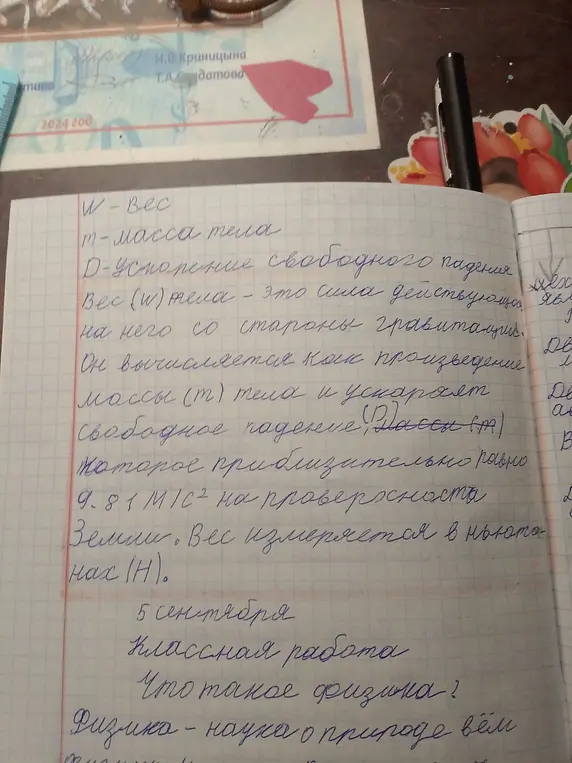 И.В. Криницына
Т.А.
2024 200
W - Вес
m - масса тела
D - Ускорение свободного падения
Вес (W) тела - это сила действующая
на него со стороны гравитации.
Он вычисляется как произведение
массы (m) тела и ускаряет
свободное падение, (D) массы (m)
которое приблизительно равно
9.81 М/С² на проверхность
Земли. Вес измеряется в ньюто-
нах (Н).
5 сентября
Классная работа
Что такое физика?
Физика - наука о природе